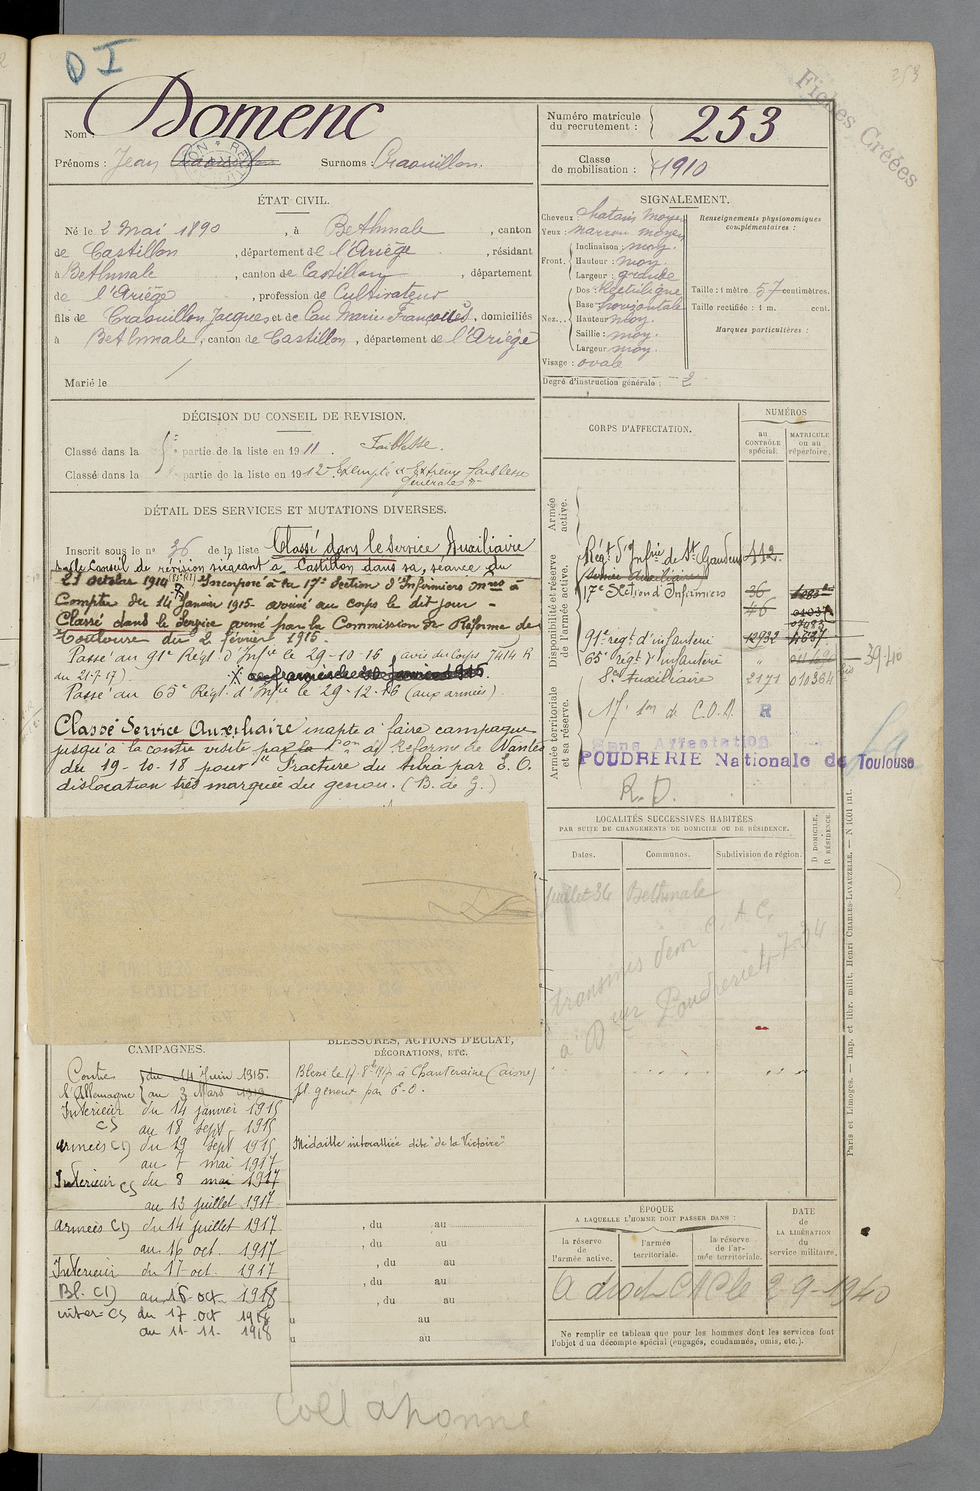 D I
253
Fiches Créées
Nom : Domenc
Prénoms : Jean Surnoms : Craouillon.
Numéro matricule du recrutement : 253
Classe de mobilisation : 1910
ÉTAT CIVIL.
Né le 2 mai 1890, à Bethmale, canton
de Castillon, département de l'Ariège, résidant
à Bethmale, canton de Castillon, département
de l'Ariège, profession de Cultivateur
fils de Craouillon Jacques et de Cau Marie Françoise, domiciliés
à Bethmale, canton de Castillon, département de l'Ariège
Marié le /
SIGNALEMENT.
Cheveux : chatain moyen
Yeux : marron moyen
Front. Inclinaison : moy.
Hauteur : moy.
Largeur : grande
Nez... Dos : Rectiligne
Base : horizontale
Hauteur : moy.
Saillie : moy.
Largeur : moy.
Visage : ovale
Renseignements physionomiques complémentaires :
Taille : 1 mètre 57 centimètres.
Taille rectifiée : 1 m. cent.
Marques particulières :
Degré d'instruction générale : 2
DÉCISION DU CONSEIL DE REVISION.
Classé dans la partie de la liste en 1911. Faiblesse.
Classé dans la partie de la liste en 1912. Exempté Extrême faiblesse
générale
DÉTAIL DES SERVICES ET MUTATIONS DIVERSES.
Inscrit sous le n° 36 de la liste Classé dans le Service Auxiliaire
par le Conseil de révision siégeant à Castillon dans sa séance du
21 octobre 1914 Incorporé à la 17e Section d'Infirmiers mres à
Compter du 14 Janvier 1915 - arrivé au corps le dit jour -
Classé dans le Service armé par la Commission de Réforme de
Toulouse du 2 février 1915.
Passé au 91e Régt d'Infie le 29-10-16 (avis du Corps 7414 R
du 21-7-17)
Passé au 65e Régt d'Infie le 29-12-16 (aux armées)
Classé Service Auxiliaire inapte à faire campagne
jusqu'à la contre visite par la Con de Réforme de Nantes
du 19-10-18 pour "Fracture du tibia par E. O.
dislocation très marquée du genou. (B. de G.)
CORPS D'AFFECTATION.
NUMÉROS
au CONTRÔLE spécial.
MATRICULE ou au répertoire.
Armée active.
Disponibilité et réserve de l'armée active.
Armée territoriale et sa réserve.
Régt d'Infie de St Gaudens 112
Service Auxiliaire
17e Section d'Infirmiers 36
46
91e régt d'infanterie 12932
65e régt d'infanterie "
Sce Auxiliaire 2171 010364
39-40
17e Son de C.O.A. R
Sans Affectation
POUDRERIE Nationale de Toulouse
R. D.
LOCALITÉS SUCCESSIVES HABITÉES
PAR SUITE DE CHANGEMENTS DE DOMICILE OU DE RÉSIDENCE.
Dates. Communes. Subdivision de région. D DOMICILE, R RÉSIDENCE.
juillet 34 Bethmale
CAMPAGNES.
Contre du 14 Juin 1915.
l'Allemagne au 3 Mars
Intérieur du 14 janvier 1915
CS au 18 sept 1915
armées CD du 19 sept 1915
au 7 mai 1917
Intérieur CS du 8 mai 1917
au 13 juillet 1917
armées CD du 14 juillet 1917
au 16 oct. 1917
Intérieur du 17 oct. 1917
Bl. CD au 16 oct. 1918
inter CS du 17 oct 1918
au 11-11- 1918
BLESSURES, ACTIONS D'ÉCLAT,
DÉCORATIONS, ETC.
Blessé le 17-8bre 1917 à Chanteraine (Aisne)
pl. genou par E-O.
Médaille interalliée dite "de la Victoire"
, du au
, du au
, du au
, du au
, du au
u au
u au
ÉPOQUE
A LAQUELLE L'HOMME DOIT PASSER DANS :
la réserve de l'armée active.
l'armée territoriale.
la réserve de l'armée territoriale.
DATE de LA LIBÉRATION du service militaire.
A droit CNC le 2-9-1940
Ne remplir ce tableau que pour les hommes dont les services font
l'objet d'un décompte spécial (engagés, condamnés, omis, etc.).
Paris et Limoges. — Imp. et libr. milit. Henri CHARLES-LAVAUZELLE. — N 1001 int.